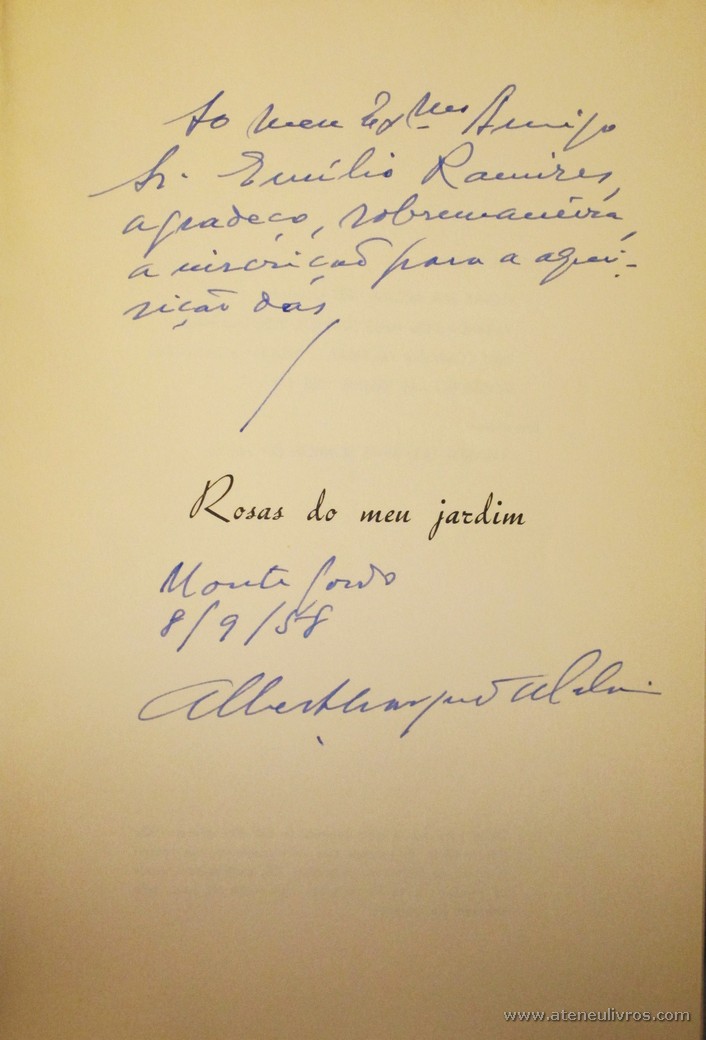 Ao meu Exmo Amigo
Sr. Emílio Ramires,
agradeço, sobremaneira,
a inscrição para a aqui-
sição das
Rosas do meu jardim
Monte Gordo
8/9/58
Albert
www.ateneulivros.com